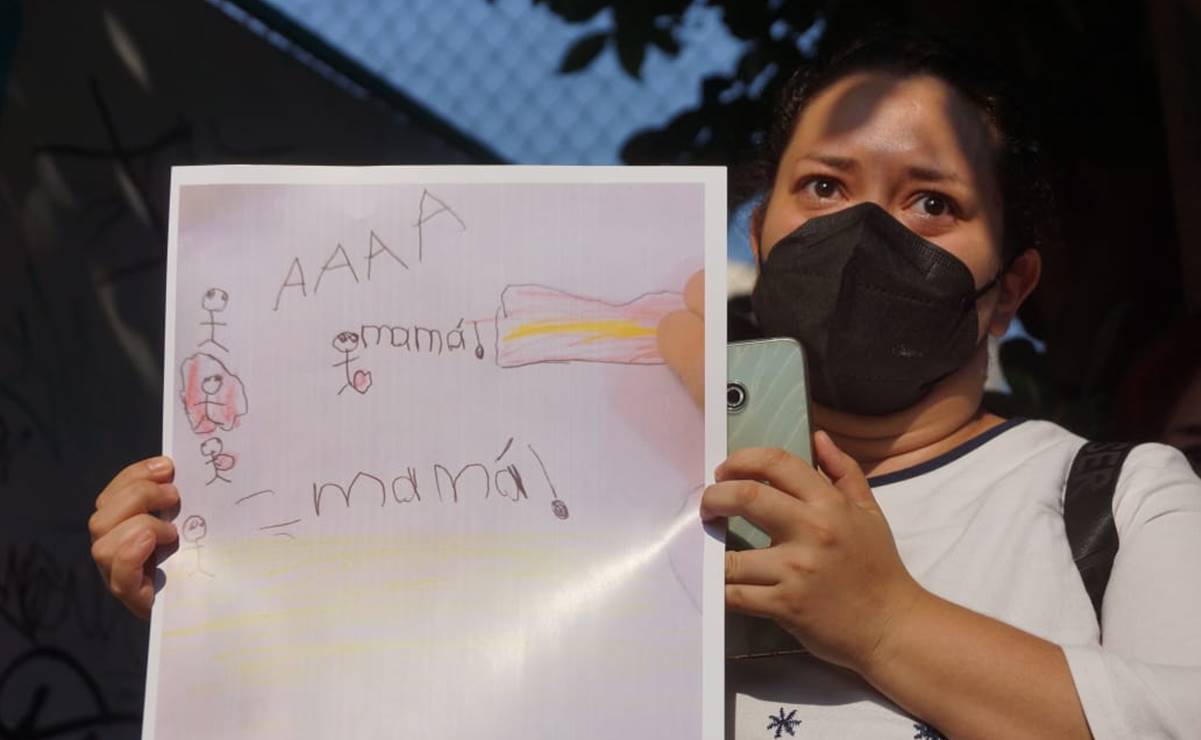 AAAA
mamá!
mamá!